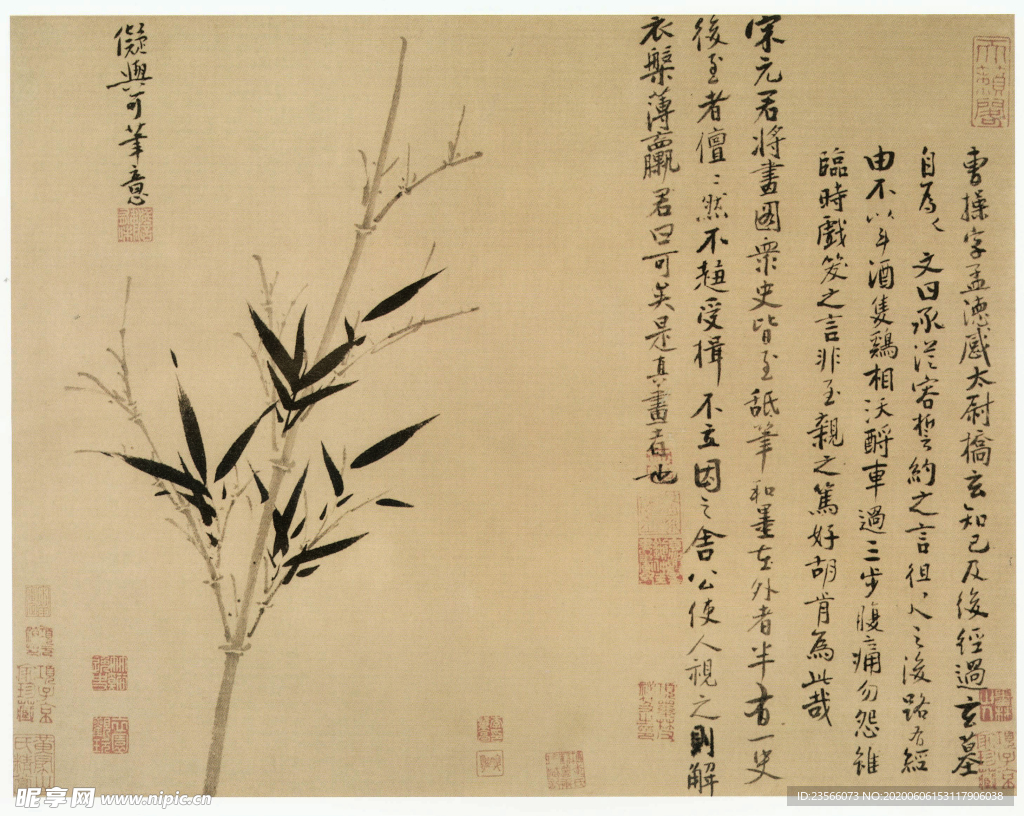 曹操字孟德感太尉橋玄知己及後經過玄墓
自為文曰承從容誓約之言徂之後路有經
由不以斗酒隻鷄相沃酹車過三步腹痛勿怨雖
臨時戲笑之言非至親之篤好胡肯為此哉
宋元君將畫圖衆史皆至舐筆和墨在外者半有一史
後至者儃〻然不趨受揖不立因之舍公使人視之則解
衣槃薄臝君曰可矣是真畫者也
儗與可筆意
天籟閣
昵享网 www.nipic.cn
ID:23566073 NO:20200606153117906038